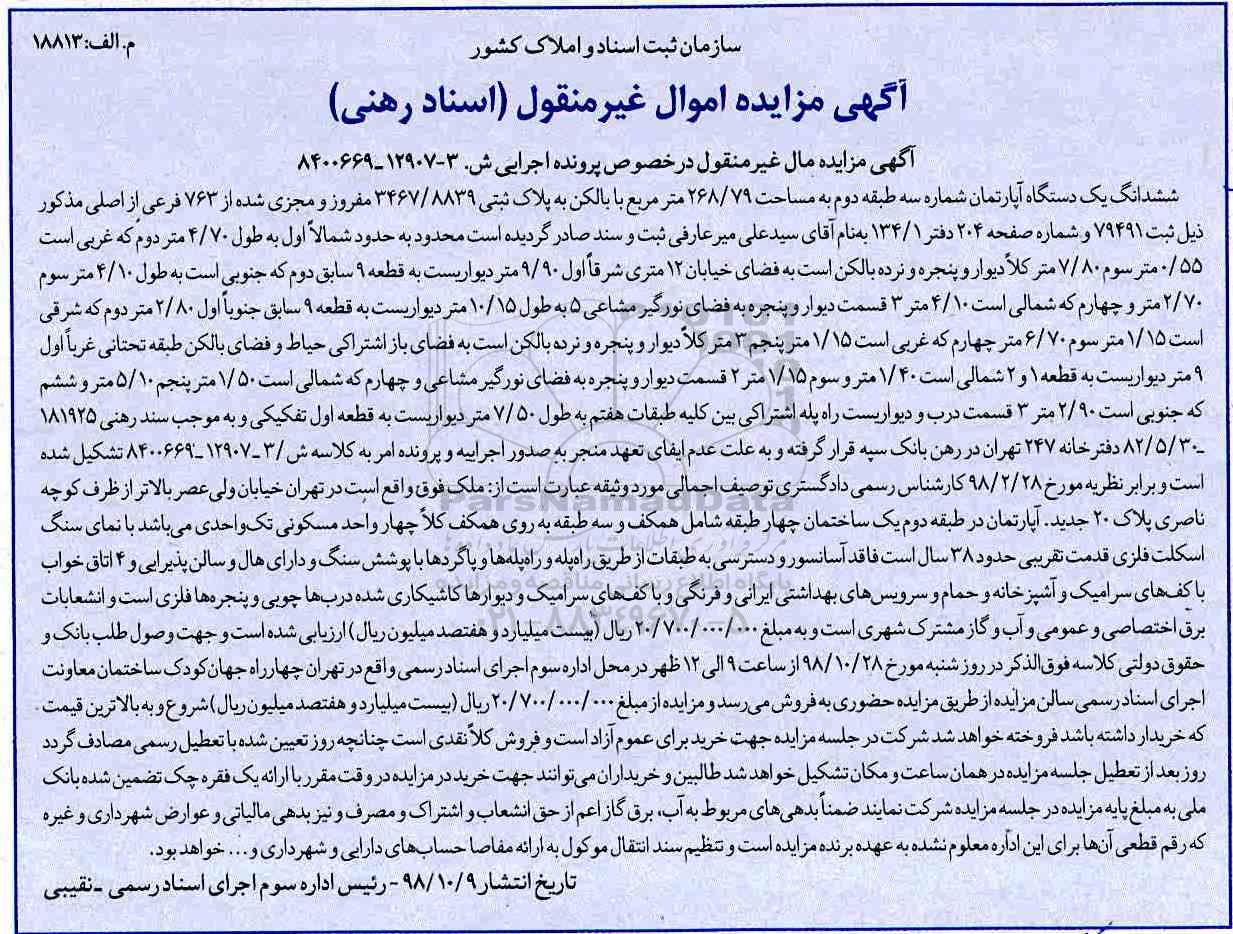 م.الف: ۱۸۸۱۳
سازمان ثبت اسناد و املاک کشور
آگهی مزایده اموال غیرمنقول (اسناد رهنی)
آگهی مزایده مال غیرمنقول در خصوص پرونده اجرایی ش. ۳-۱۲۹۰۷ـ۸۴۰۰۶۶۹
ششدانگ یک دستگاه آپارتمان شماره سه طبقه دوم به مساحت ۲۶۸/۷۹ متر مربع با بالکن به پلاک ثبتی ۳۴۶۷/۸۸۳۹ مفروز و مجزی شده از ۷۶۳ فرعی از اصلی مذکور
ذیل ثبت ۷۹۴۹۱ و شماره صفحه ۲۰۴ دفتر ۱۳۴/۱ به‌نام آقای سیدعلی میرعارفی ثبت و سند صادر گردیده است محدود به حدود شمالاً اول به طول ۴/۷۰ متر دوم که غربی است
۰/۵۵ متر سوم ۷/۸۰ متر کلاً دیوار و پنجره و نرده بالکن است به فضای خیابان ۱۲ متری شرقاً اول ۹/۹۰ متر دیواریست به قطعه ۹ سابق دوم که جنوبی است به طول ۴/۱۰ متر سوم
۲/۷۰ متر و چهارم که شمالی است ۴/۱۰ متر ۳ قسمت دیوار و پنجره به فضای نورگیر مشاعی ۵ به طول ۱۰/۱۵ متر دیواریست به قطعه ۹ سابق جنوباً اول ۲/۸۰ متر دوم که شرقی
است ۱/۱۵ متر سوم ۶/۷۰ متر چهارم که غربی است ۱/۱۵ متر پنجم ۳ متر کلاً دیوار و پنجره و نرده بالکن است به فضای باز اشتراکی حیاط و فضای بالکن طبقه تحتانی غرباً اول
۹ متر دیواریست به قطعه ۱ و ۲ شمالی است ۱/۴۰ متر و سوم ۱/۱۵ متر ۲ قسمت دیوار و پنجره به فضای نورگیر مشاعی و چهارم که شمالی است ۱/۵۰ متر پنجم ۵/۱۰ متر و ششم
که جنوبی است ۲/۹۰ متر ۳ قسمت درب و دیواریست راه پله اشتراکی بین کلیه طبقات هفتم به طول ۷/۵۰ متر دیواریست به قطعه اول تفکیکی و به موجب سند رهنی ۱۸۱۹۲۵
ـ۸۲/۵/۳۰ دفترخانه ۲۴۷ تهران در رهن بانک سپه قرار گرفته و به علت عدم ایفای تعهد منجر به صدور اجراییه و پرونده امر به کلاسه ش/۳ ـ۱۲۹۰۷ ـ۸۴۰۰۶۶۹ تشکیل شده
است و برابر نظریه مورخ ۹۸/۲/۲۸ کارشناس رسمی دادگستری توصیف اجمالی مورد وثیقه عبارت است از: ملک فوق واقع است در تهران خیابان ولی‌عصر بالاتر از ظرف کوچه
ناصری پلاک ۲۰ جدید. آپارتمان در طبقه دوم یک ساختمان چهار طبقه شامل همکف و سه طبقه به روی همکف کلاً چهار واحد مسکونی تک‌واحدی می‌باشد با نمای سنگ
اسکلت فلزی قدمت تقریبی حدود ۳۸ سال است فاقد آسانسور و دسترسی به طبقات از طریق راه‌پله و راه‌پله‌ها و پاگردها با پوشش سنگ و دارای هال و سالن پذیرایی و ۴ اتاق خواب
با کف‌های سرامیک و آشپزخانه و حمام و سرویس‌های بهداشتی ایرانی و فرنگی و با کف‌های سرامیک و دیوارها کاشیکاری شده درب‌ها چوبی و پنجره‌ها فلزی است و انشعابات
برق اختصاصی و عمومی و آب و گاز مشترک شهری است و به مبلغ ۲۰/۷۰۰/۰۰۰/۰۰۰ ریال (بیست میلیارد و هفتصد میلیون ریال) ارزیابی شده است و جهت وصول طلب بانک و
حقوق دولتی کلاسه فوق‌الذکر در روز شنبه مورخ ۹۸/۱۰/۲۸ از ساعت ۹ الی ۱۲ ظهر در محل اداره سوم اجرای اسناد رسمی واقع در تهران چهارراه جهان‌کودک ساختمان معاونت
اجرای اسناد رسمی سالن مزایده از طریق مزایده حضوری به فروش می‌رسد و مزایده از مبلغ ۲۰/۷۰۰/۰۰۰/۰۰۰ ریال (بیست میلیارد و هفتصد میلیون ریال) شروع و به بالاترین قیمت
که خریدار داشته باشد فروخته خواهد شد شرکت در جلسه مزایده جهت خرید برای عموم آزاد است و فروش کلاً نقدی است چنانچه روز تعیین شده با تعطیل رسمی مصادف گردد
روز بعد از تعطیل جلسه مزایده در همان ساعت و مکان تشکیل خواهد شد طالبین و خریداران می‌توانند جهت خرید در مزایده در وقت مقرر با ارائه یک فقره چک تضمین شده بانک
ملی به مبلغ پایه مزایده در جلسه مزایده شرکت نمایند ضمناً بدهی‌های مربوط به آب، برق گاز اعم از حق انشعاب و اشتراک و مصرف و نیز بدهی مالیاتی و عوارض شهرداری و غیره
که رقم قطعی آن‌ها برای این اداره معلوم نشده به عهده برنده مزایده است و تنظیم سند انتقال موکول به ارائه مفاصا حساب‌های دارایی و شهرداری و... خواهد بود.
تاریخ انتشار ۹۸/۱۰/۹ - رئیس اداره سوم اجرای اسناد رسمی ـ نقیبی
ParsNamadData
پایگاه اطلاع رسانی مناقصه و مزایده
۰۲۱-۸۸۳۴۹۶۷۰-۵